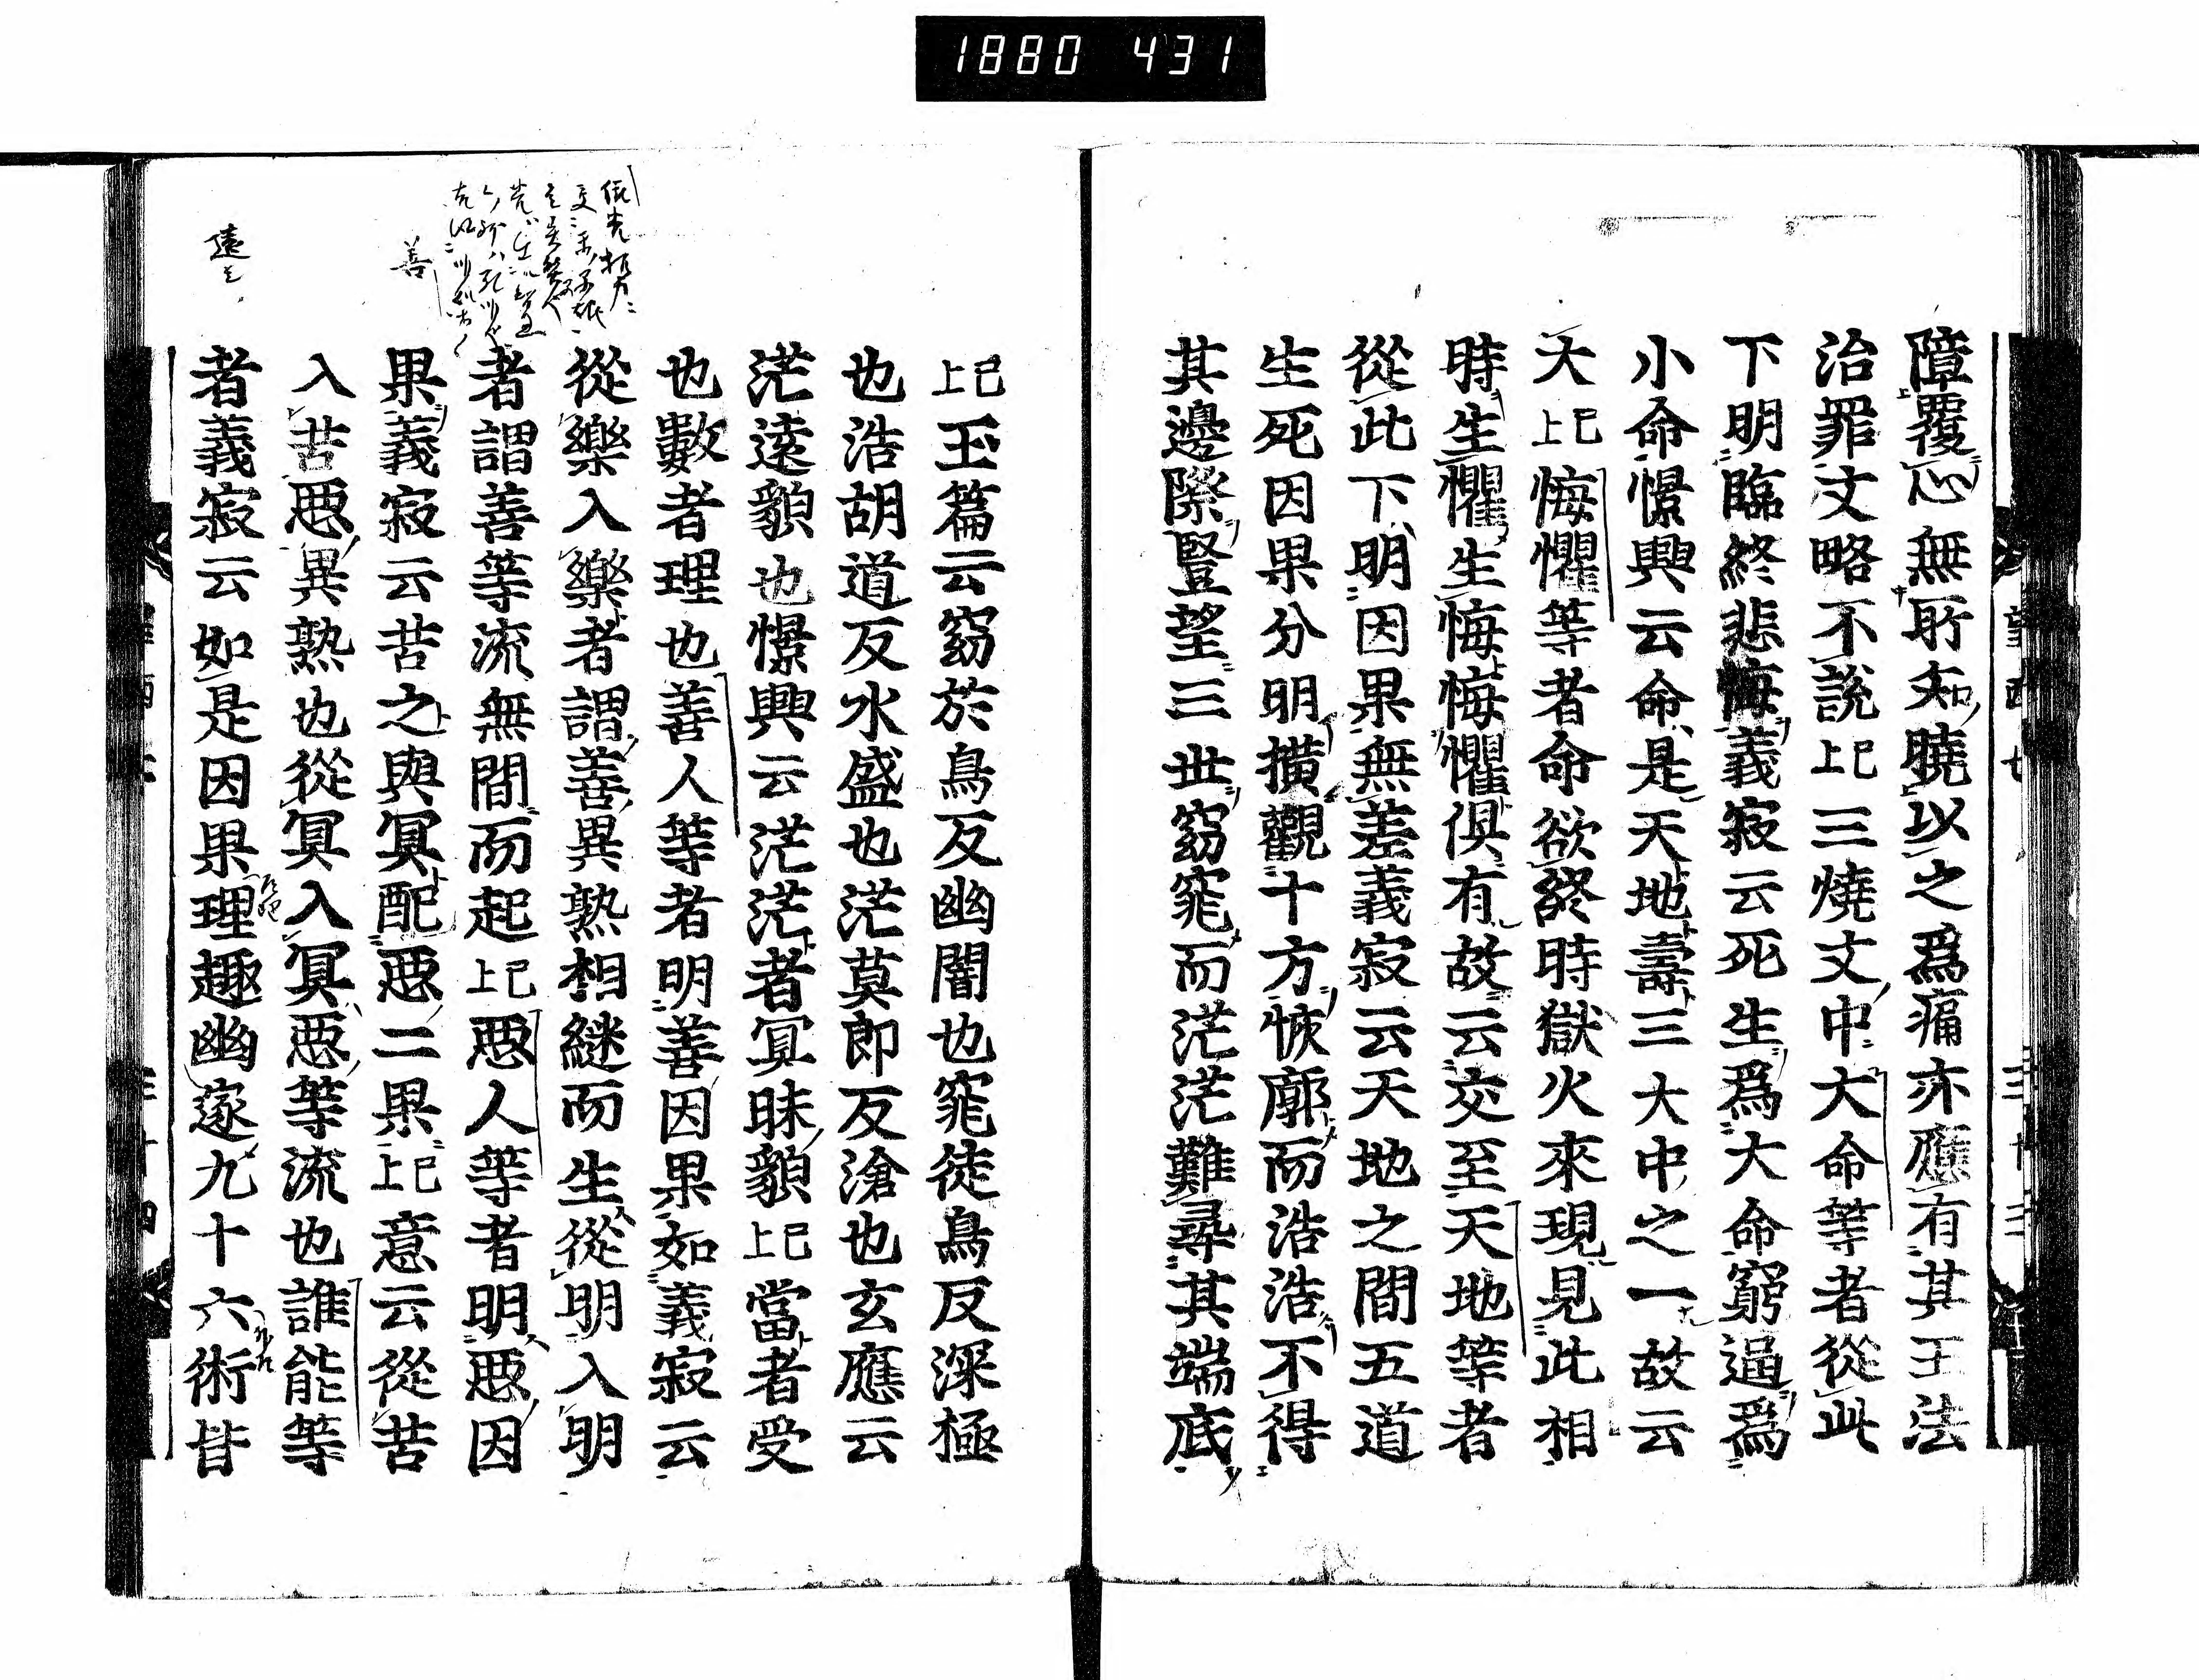 1880 431
障覆心無所知曉以之爲痛亦應有其王法
治罪文略不說已上三燒文中大命等者從此
下明臨終悲悔義寂云死生爲大命窮逼爲
小命憬興云命是天地壽三大中之一故云
大已上悔懼等者命欲終時獄火來現見此相
時生懼生悔悔懼俱有故云交至天地等者
從此下明因果無差義寂云天地之間五道
生死因果分明撗觀十方恢廓而浩浩不得
其邊際豎望三世窈窕而茫茫難尋其端底
已上玉篇云窈於鳥反幽闇也窕徒鳥反深極
也浩胡道反水盛也茫莫郎反滄也玄應云
茫遠貌也憬興云茫茫者冥昧貌已上當者受
也數者理也善人等者明善因果如義寂云
從樂入樂者謂善異熟相継而生從明入明
者謂善等流無間而起已上惡人等者明惡因
果義寂云苦之與冥配惡二果已上意云從苦
入苦惡異熟也從冥入冥惡等流也誰能等
者義寂云如是因果理趣幽邃九十六術皆
善
遠